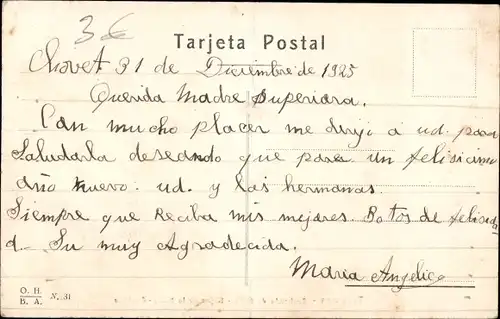 3 €
Tarjeta Postal
Chovet 31 de Diciembre de 1925
Querida Madre Superiora.
Con mucho placer me dirijo a ud. para
Saludarla deseando que pase un felisimo
año nuevo. ud. y las hermanas.
Siempre que reciba mis mejores. Botos de felisida
d. Su muy Agradecida.
Maria Angelica
O. H.
B. A. N. 31